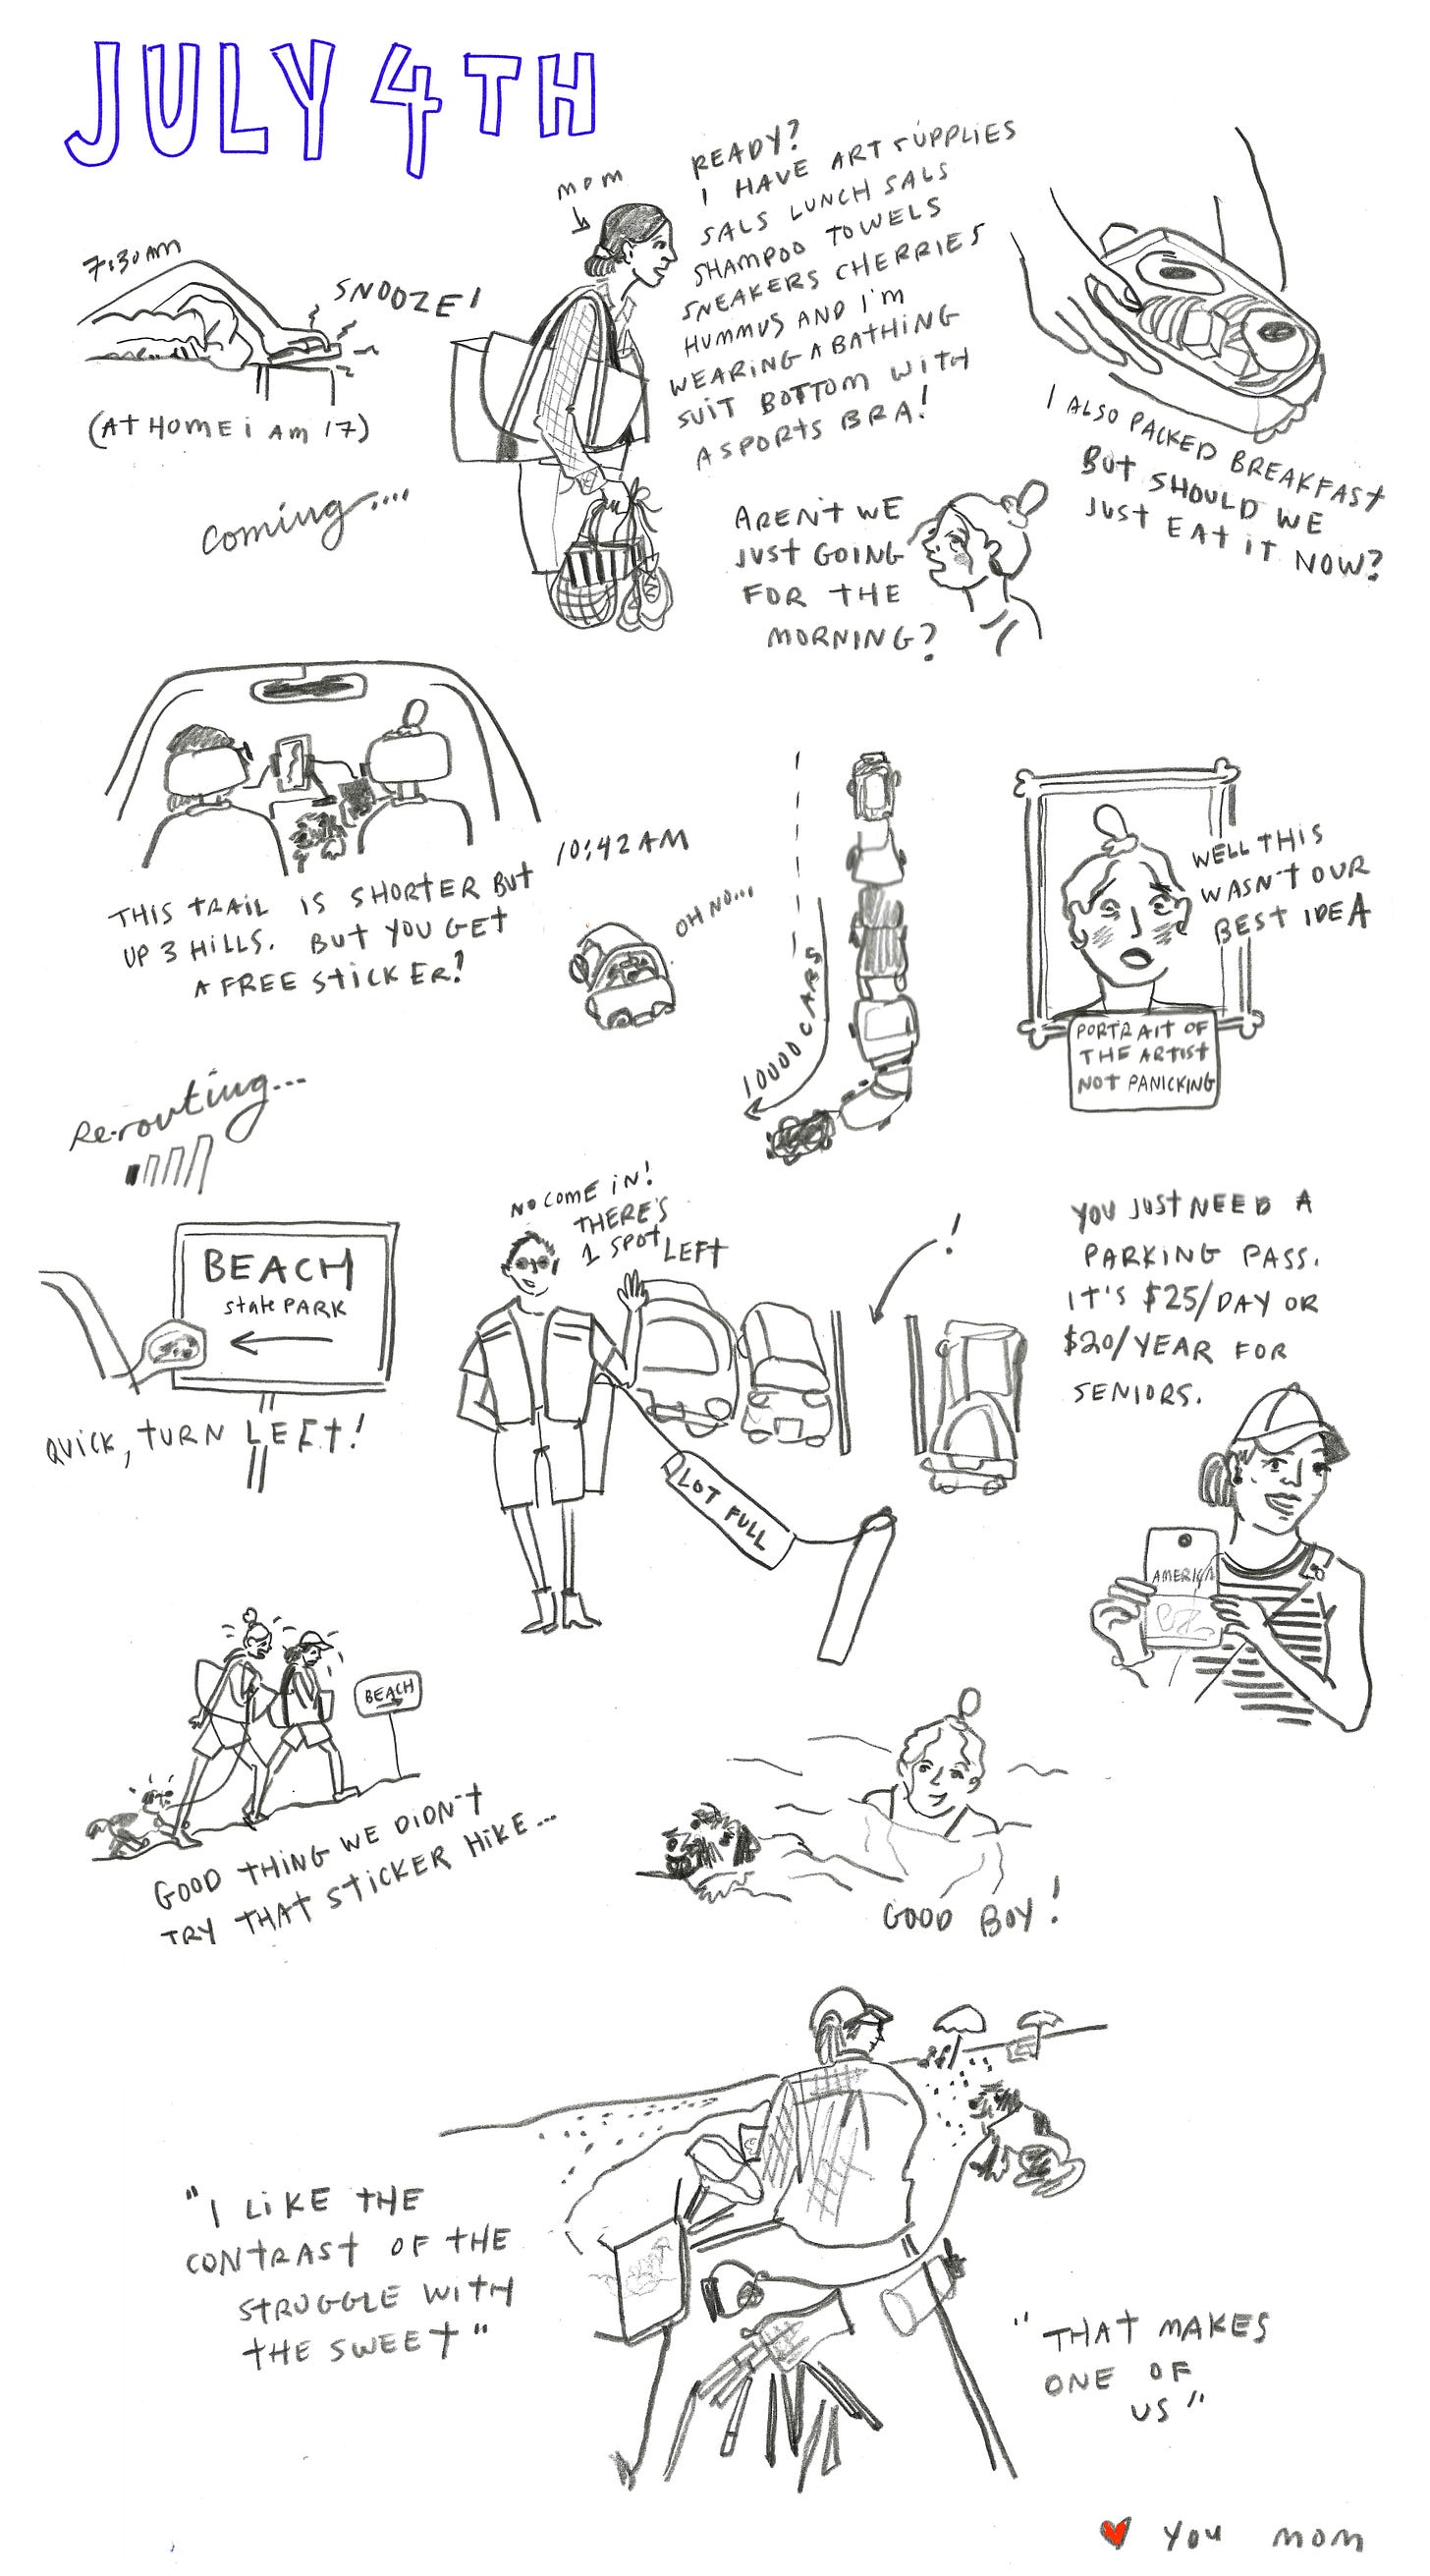 JULY 4TH
7:30AM
SNOOZE!
(AT HOME i AM 17)
coming....
mom
READY?
I HAVE ART SUPPLIES
SALS LUNCH SALS
SHAMPOO TOWELS
SNEAKERS CHERRIES
HUMMUS AND I'M
WEARING A BATHING
SUIT BOTTOM WITH
A SPORTS BRA!
I ALSO PACKED BREAKFAST
BUT SHOULD WE
JUST EAT IT NOW?
AREN'T WE
JUST GOING
FOR THE
MORNING?
THIS TRAIL IS SHORTER BUT
UP 3 HILLS. BUT YOU GET
A FREE STICKER!
10:42AM
OH NO...
10000 CARS
WELL THIS
WASN'T OUR
BEST IDEA
PORTRAIT OF
THE ARTIST
NOT PANICKING
Re-routing...
BEACH
State PARK
QUICK, TURN LEFT!
NO COME IN!
THERE'S
1 SPOT LEFT
!
LOT FULL
YOU JUST NEED A
PARKING PASS.
IT'S $25/DAY OR
$20/YEAR FOR
SENIORS.
AMERICA
BEACH
GOOD THING WE DIDN'T
TRY THAT STICKER HIKE...
GOOD BOY!
"I LIKE THE
CONTRAST OF THE
STRUGGLE WITH
THE SWEET"
"THAT MAKES
ONE OF
US"
you mom